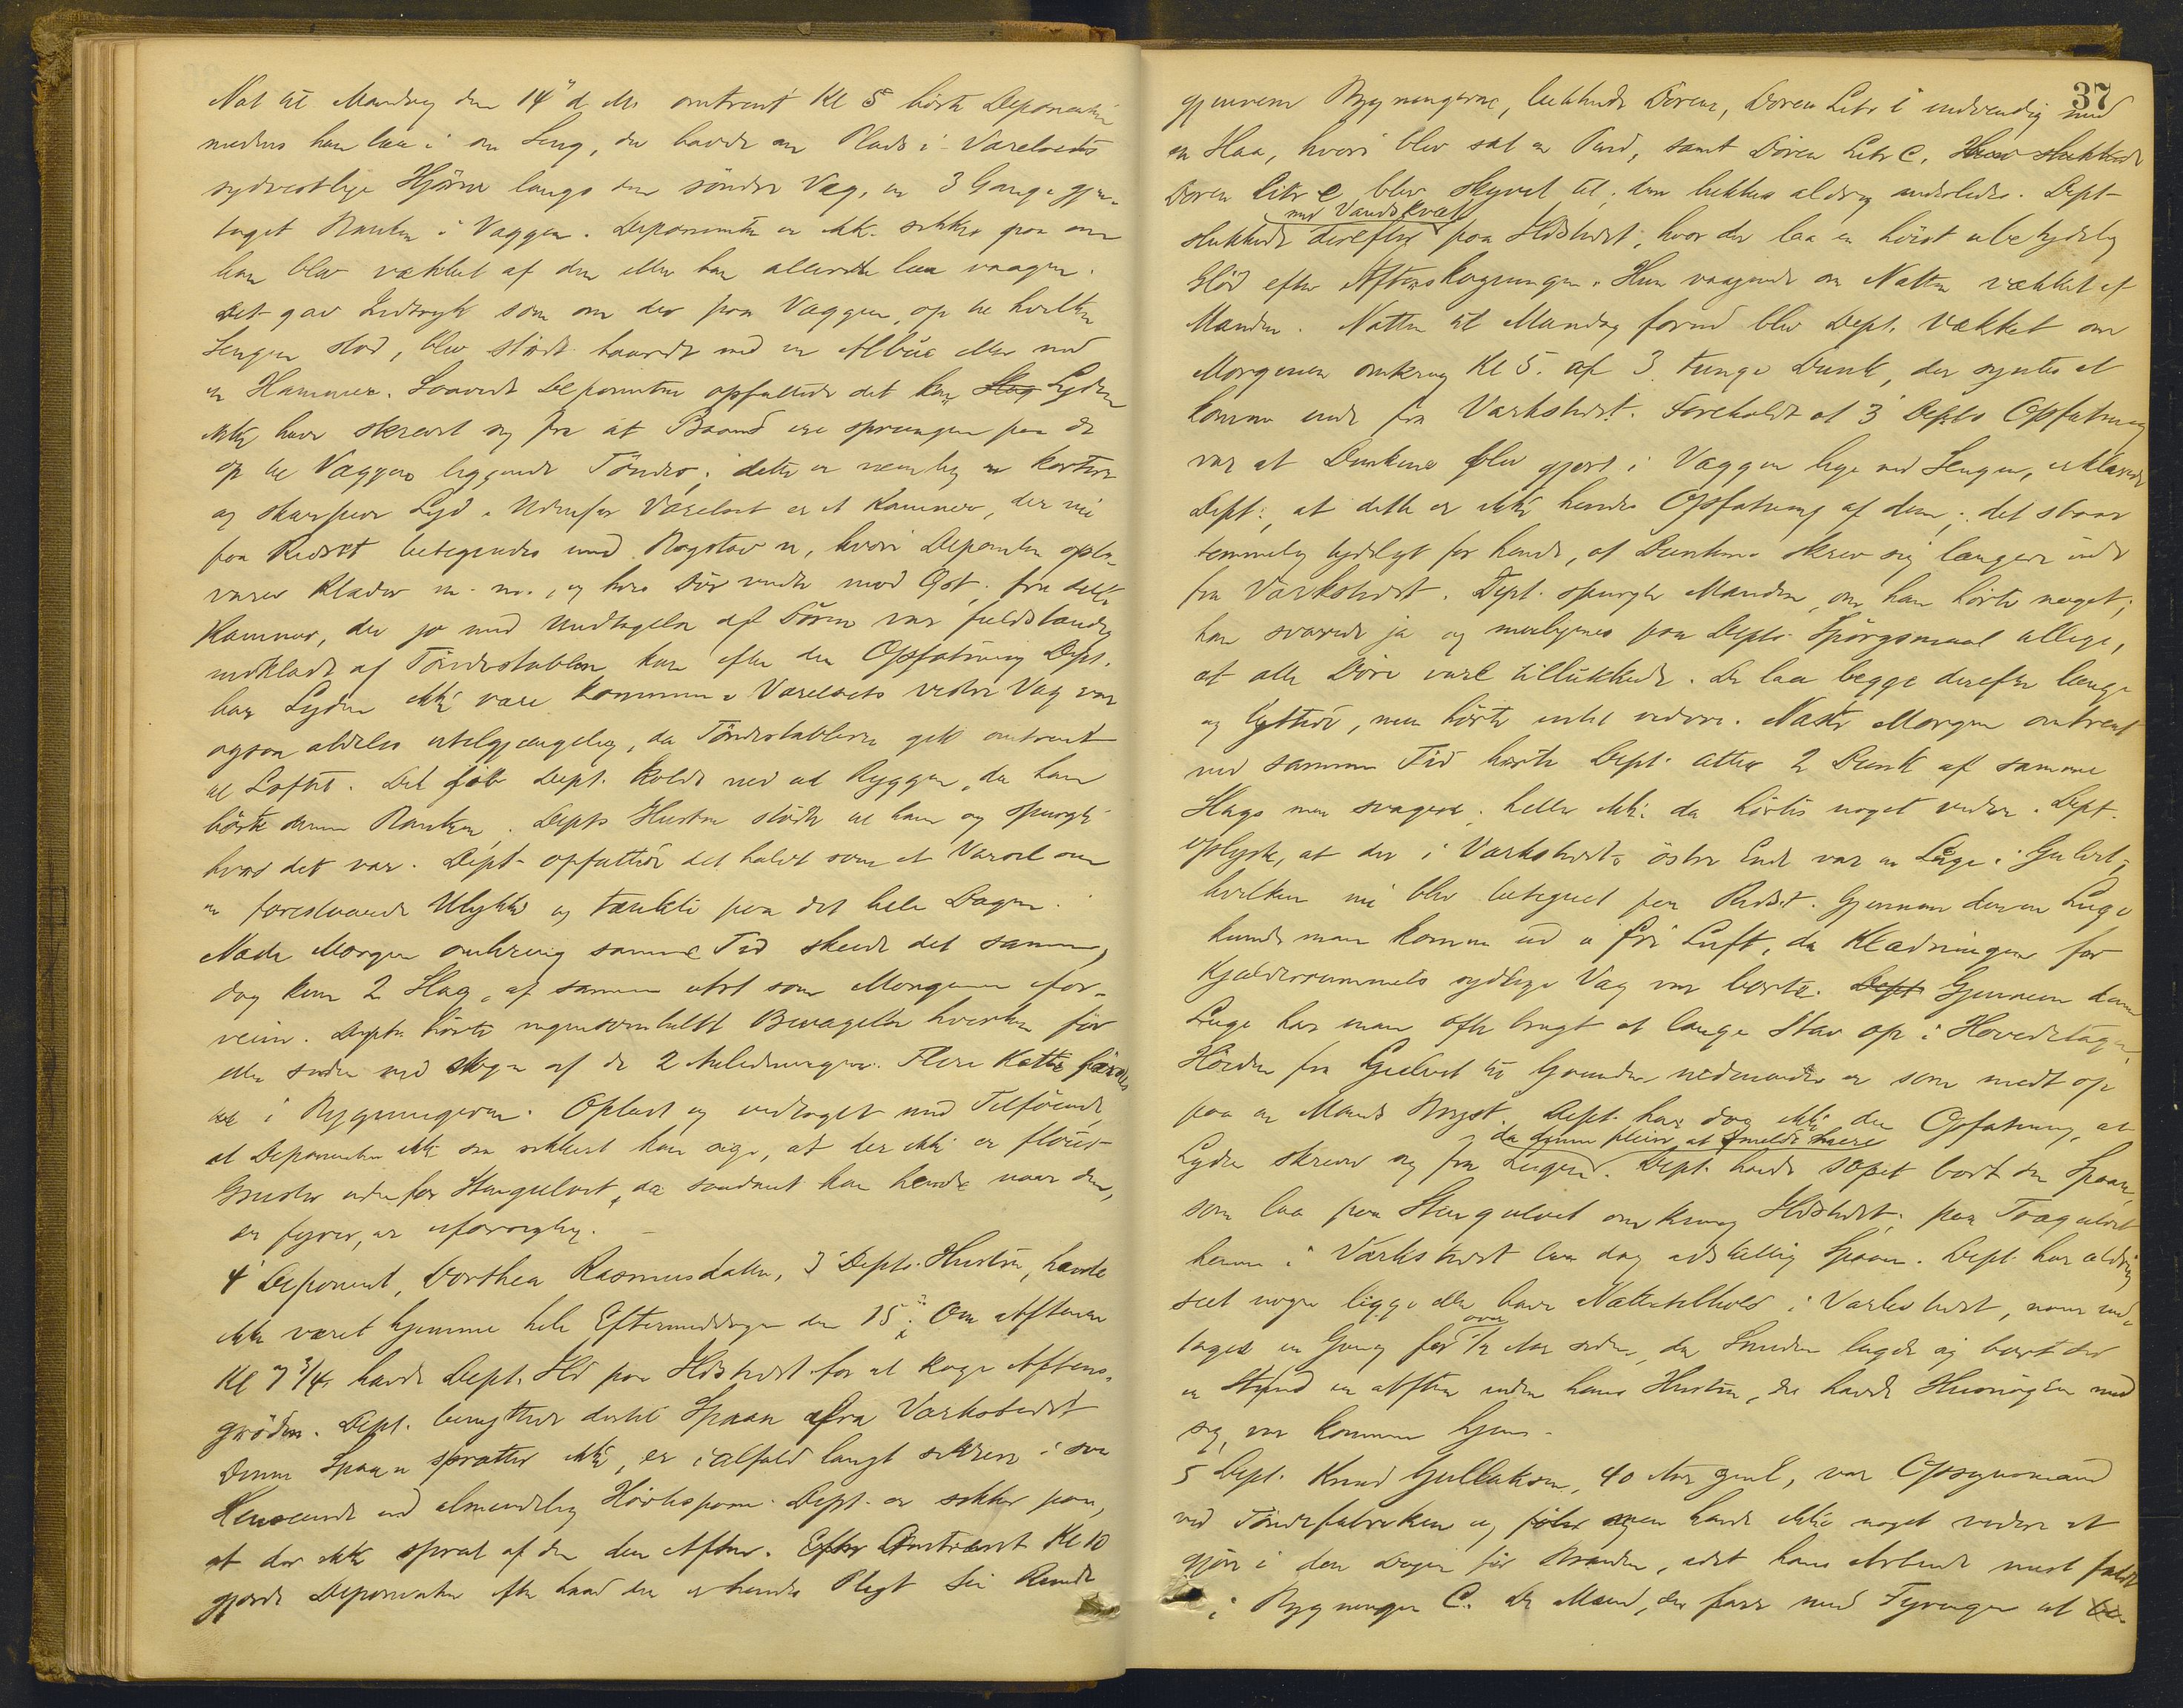 Nat til Mandag den 14' d. Ms. omtrent Kl 5 hørte Deponenten
medens han laa i en Seng, der havde sin Plads i Værelsets
sydvestlige Hjørne langs den søndre Væg, en 3 Gange gjen-
taget Banken i Væggen. Deponenten er ikke sikker paa om
han blev vækket af den eller han allerede laa vaagen.
Det gav Indtryk som om der paa Væggen, op til hvilken
Sengen stod, blev stødt haardt med en Albue eller med
en Hammer. Saavidt Deponenten opfattede det kan Slag Lyden
ikke have skrevet sig fra at Baand ere sprungne paa de
op til Væggen liggende Tønder; dette er nemlig en kortere
og skarpere Lyd. Udenfor Værelset er et Kammer, der nu
paa Ridset betegnedes med Bogstav n, hvori Deponenten opbe-
varer Klæder m. m., og hvis Dør vender mod Øst; fra dette
Kammer, der jo med Undtagelse af Døren var fuldstændig
indklædt af Tøndestabler kan efter den Opfatning Dept.
har Lyden ikke være kommen. Værelsets vestre Væg var
ogsaa aldeles utilgjængelig, da Tøndestablerne gik omtrent
til Loftet. Det gik Dept. koldt ned ad Ryggen, da han
hørte denne Banken. Depts Hustru stødte til ham og spurgte
hvad det var. Dept. opfattede det halvt som et Varsel om
en forestaaende Ulykke og tænkte paa det hele Dagen.
Næste Morgen omkring samme Tid skede det samme,
dog kun 2 Slag, af samme Art som Morgenen for-
veien. Depten hørte ingensomhelst Bevægelse hverken før
eller siden ved nogen af de 2 Anledninger. Flere Katte færdes
i Bygningerne. Oplæst og vedtaget med Tilføiende
at Deponenten ikke saa sikkert kan sige, at der ikke er fløiet
Gnister udenfor Stengulvet, da saadant kan hende naar den,
der fyrer, er uforsigtig.
4' Deponent, Dorthea Rasmusdatter, 3' Depts. Hustru, havde
ikke været hjemme hele Eftermiddagen den 15'. Om Aftenen
Kl 7 3/4 havde Dept. Ild paa Ildstedet for at koge Aftens-
grøden. Dept. benyttede dertil Spaan fra Værkstedet
Denne Spaan spratter ikke, er ialfald langt sikrere i saa
Henseende end almindelig Høvlspaan. Dept. er sikker paa,
at der ikke sprat af den den Aften. Efter Omtrent Kl 10
gjorde Deponenten efter hvad der er hendes Pligt sin Runde
37
gjennem Bygningerne, lukkede Dørene, Døren Litr i indvendig med
en Haa, hvori blev sat en Pind, samt Døren Litr c. Hun slukkede
Døren Litr e blev skyvet til; den lukkes aldrig anderledes. Dept
med Vandskvæt
slukkede derefter paa Ildstedet, hvor der laa en høist ubetydelig
Glød efter Aftenskogningen. Hun vaagnede om Natten vækket af
Manden. Natten til Mandag forud blev Dept. vækket om
Morgenen omkring Kl 5. af 3 tunge Dunk, der syntes at
komme inde fra Værkstedet. Foreholdt at 3' Depts Opfatning
var at Dunkene blev gjort i Væggen lige ved Sengen, erklærede
Dept., at dette er ikke hendes Opfatning af dem; det staar
temmelig tydeligt for hende, at Dunkene skrev sig længere inde
fra Værkstedet. Dept. spurgte Manden om han hørte noget;
han svarede ja og paa Depts Spørgsmaal tillige,
at alle Døre vare tillukkede. De laa begge derefter længe
og lyttede, men hørte intet videre. Næste Morgen omtrent
ved samme Tid hørte Dept. atter 2 Dunk af samme
Slags men svagere; heller ikke da hørtes noget videre. Dept.
oplyste, at der i Værkstedets østre Ende var en Luge i Gulvet,
hvilken nu blev betegnet paa Ridset. Gjennem denne Luge
kunde man komme ud i fri Luft, da Klædningen for
Kjælderrummets sydlige Væg var borte. Dept Gjennem denne
Luge har man ofte bragt et lange Stav op i Hovedetagen.
Høiden fra Gulvet til Grunden nedenunder er som midt op
paa en Mands Bryst. Dept. har dog ikke den Opfatning, at
da denne pleier at smelde mere
Lyden skrev sig fra Lugen. Dept. havde sopet bort den Spaan,
som laa paa Stengulvet omkring Ildstedet; paa Trægulvet
henne i Værkstedet laa dog adskillig Spaan. Dept. har aldrig
seet nogen ligge eller have Natteophold i Værkstedet, naar und-
over
tages en Gang for 1/2 Aar siden, da Smeden lagde sig bort der
en Stund en Aften inden hans Hustru, der havde Husnøglen med
sig, var kommen hjem.
5 Dept. Knud Gullaksen, 40 Aar gml, var Opsynsmand
ved Tøndefabriken og men havde ikke noget videre at
gjøre i den Dagen før Branden, idet hans Arbeide mest faldt
i Bygningen C. De Mænd, der fare med Fyringen at